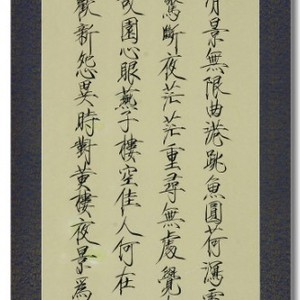 清景無限曲港跳魚圓荷瀉露
驚斷夜茫茫重尋無處覺
故園心眼燕子樓空佳人何在
歡新怨異時對黃樓夜景為